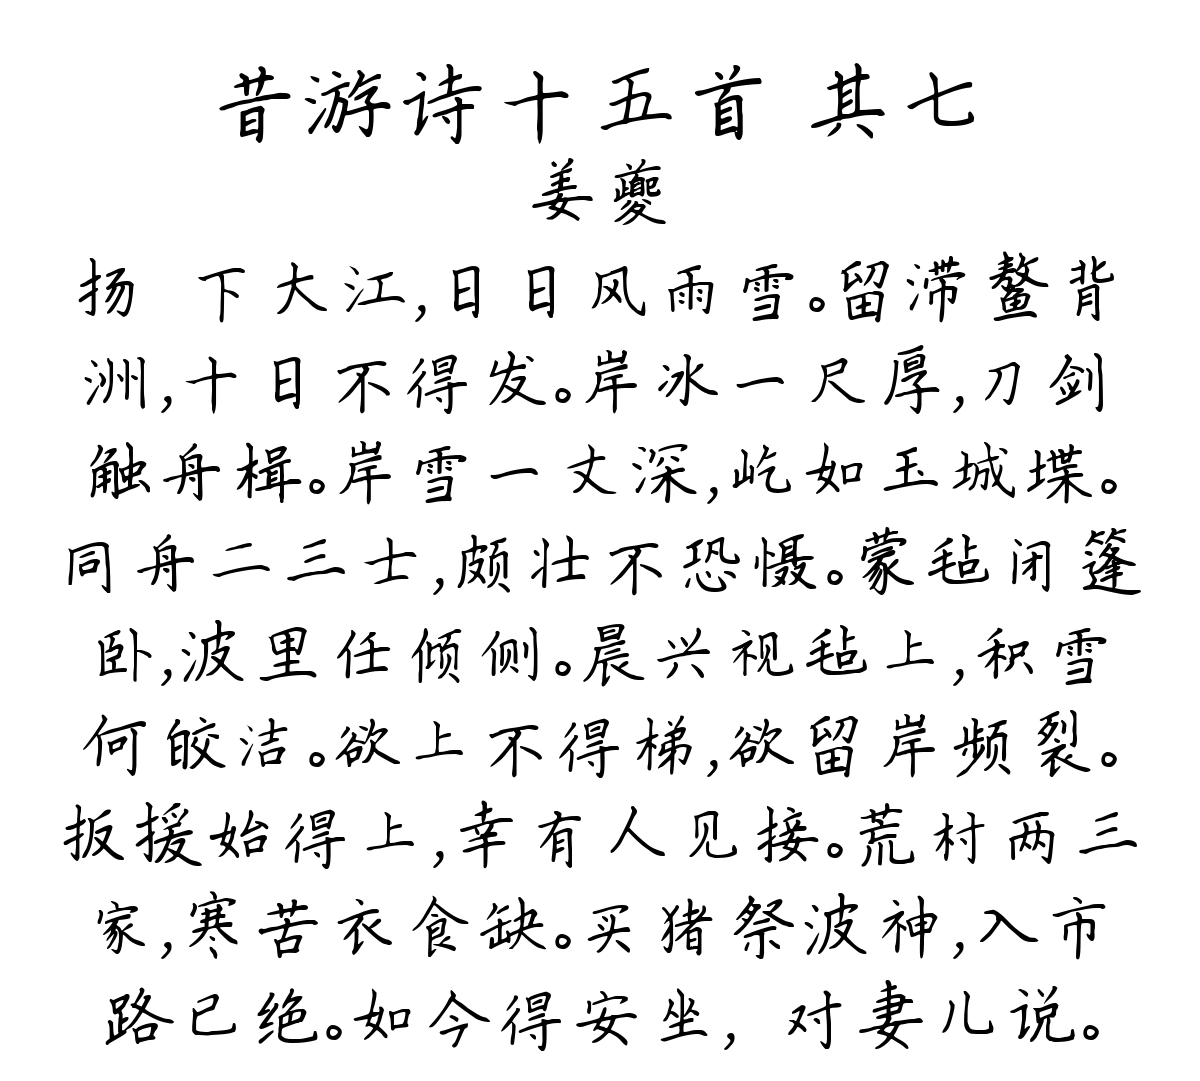 昔游诗十五首 其七
姜夔
扬 下大江,日日风雨雪。留滞鳌背
洲,十日不得发。岸冰一尺厚,刀剑
触舟楫。岸雪一丈深,屹如玉城堞。
同舟二三士,颇壮不恐慑。蒙毡闭篷
卧,波里任倾侧。晨兴视毡上,积雪
何皎洁。欲上不得梯,欲留岸频裂。
扳援始得上,幸有人见接。荒村两三
家,寒苦衣食缺。买猪祭波神,入市
路已绝。如今得安坐, 对妻儿说。